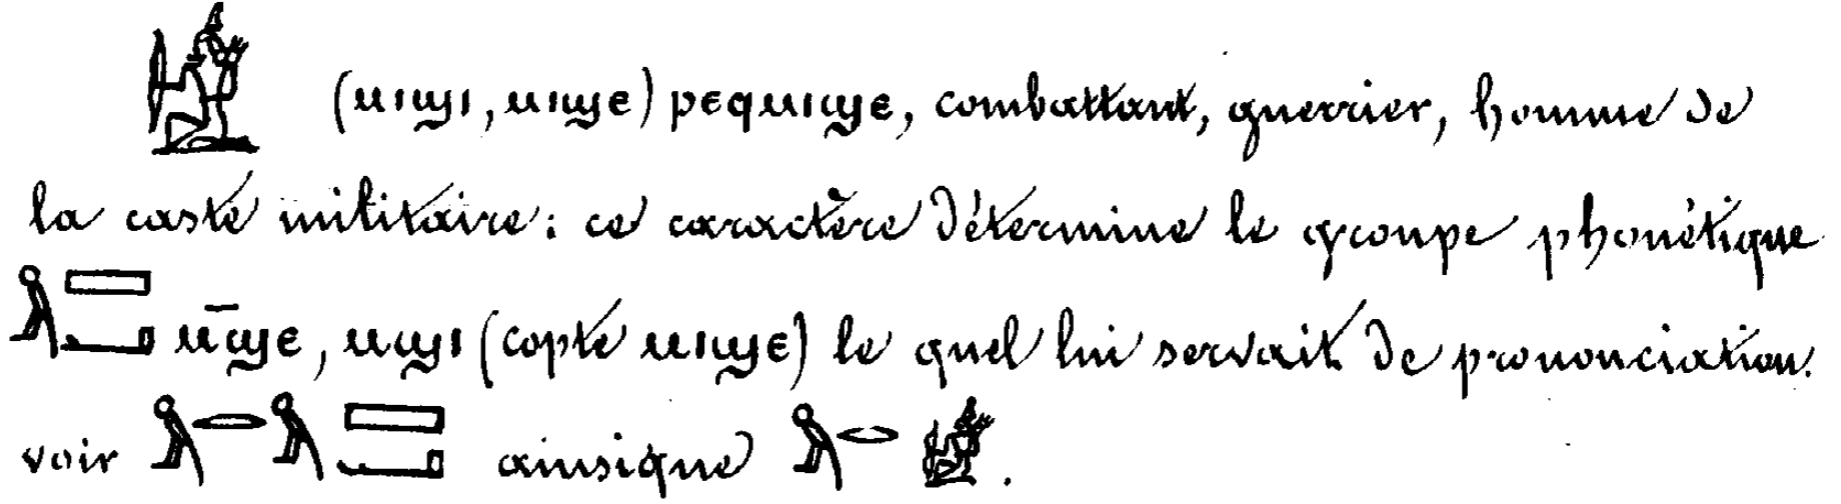 (ⲙⲓϣⲓ, ⲙⲓϣⲉ) ⲣⲉϥⲙⲓϣⲉ, combattant, guerrier, homme de
la caste militaire: ce caractère détermine le groupe phonétique
ⲙ̄ϣⲉ, ⲙϣⲓ (copte ⲙⲓϣⲉ) le quel lui servait de prononciation.
voir ainsique .